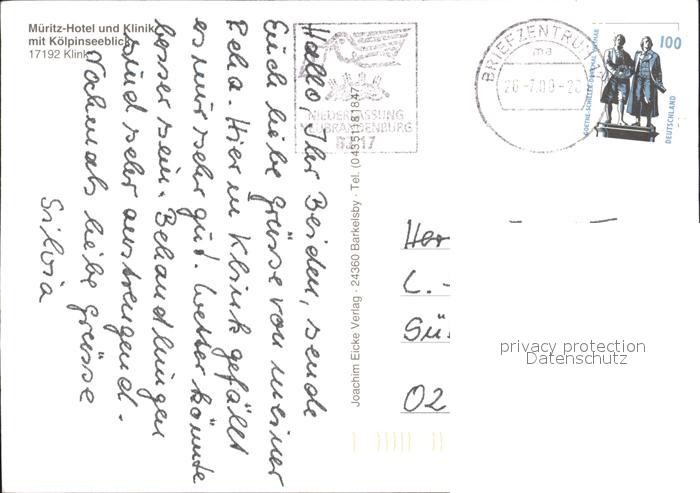 Müritz-Hotel und Klinik
mit Kölpinseeblick
17192 Klink
Hallo, Ihr Beiden, sende
Euch liebe Grüsse von meiner
Reha. Hier in Klink gefällt
es mir sehr gut. Wetter könnte
besser sein. Behandlungen
sind sehr anstrengend.
Nochmals liebe Grüsse
Silvia
Joachim Eicke Verlag · 24360 Barkelsby · Tel. (04351) 81847
NIEDERLASSUNG
NEUBRANDENBURG
BRIEFZENTRUM
ma
100
GOETHE-SCHILLER-DENKMAL WEIMAR
DEUTSCHLAND
Her
L.
Sü
02
privacy protection
Datenschutz